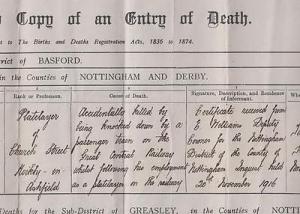 Copy of an Entry of Death.
to The Births and Deaths Registration Acts, 1836 to 1874.
District of BASFORD.
in the Counties of NOTTINGHAM AND DERBY.
Rank or Profession. Cause of Death. Signature, Description, and Residence of Informant.
Platelayer
of
Church Street
Kirkby-in-
Ashfield
Accidentally killed by
being knocked down by a
passenger train on the
Great Central Railway
whilst following his employment
as a platelayer on the railway
Certificate received from
E. Williams Deputy
Coroner for the Nottingham
District of the County of
Nottingham Inquest held
20th November 1916
in the Sub-District of GREASLEY, in the Counties of NOTT